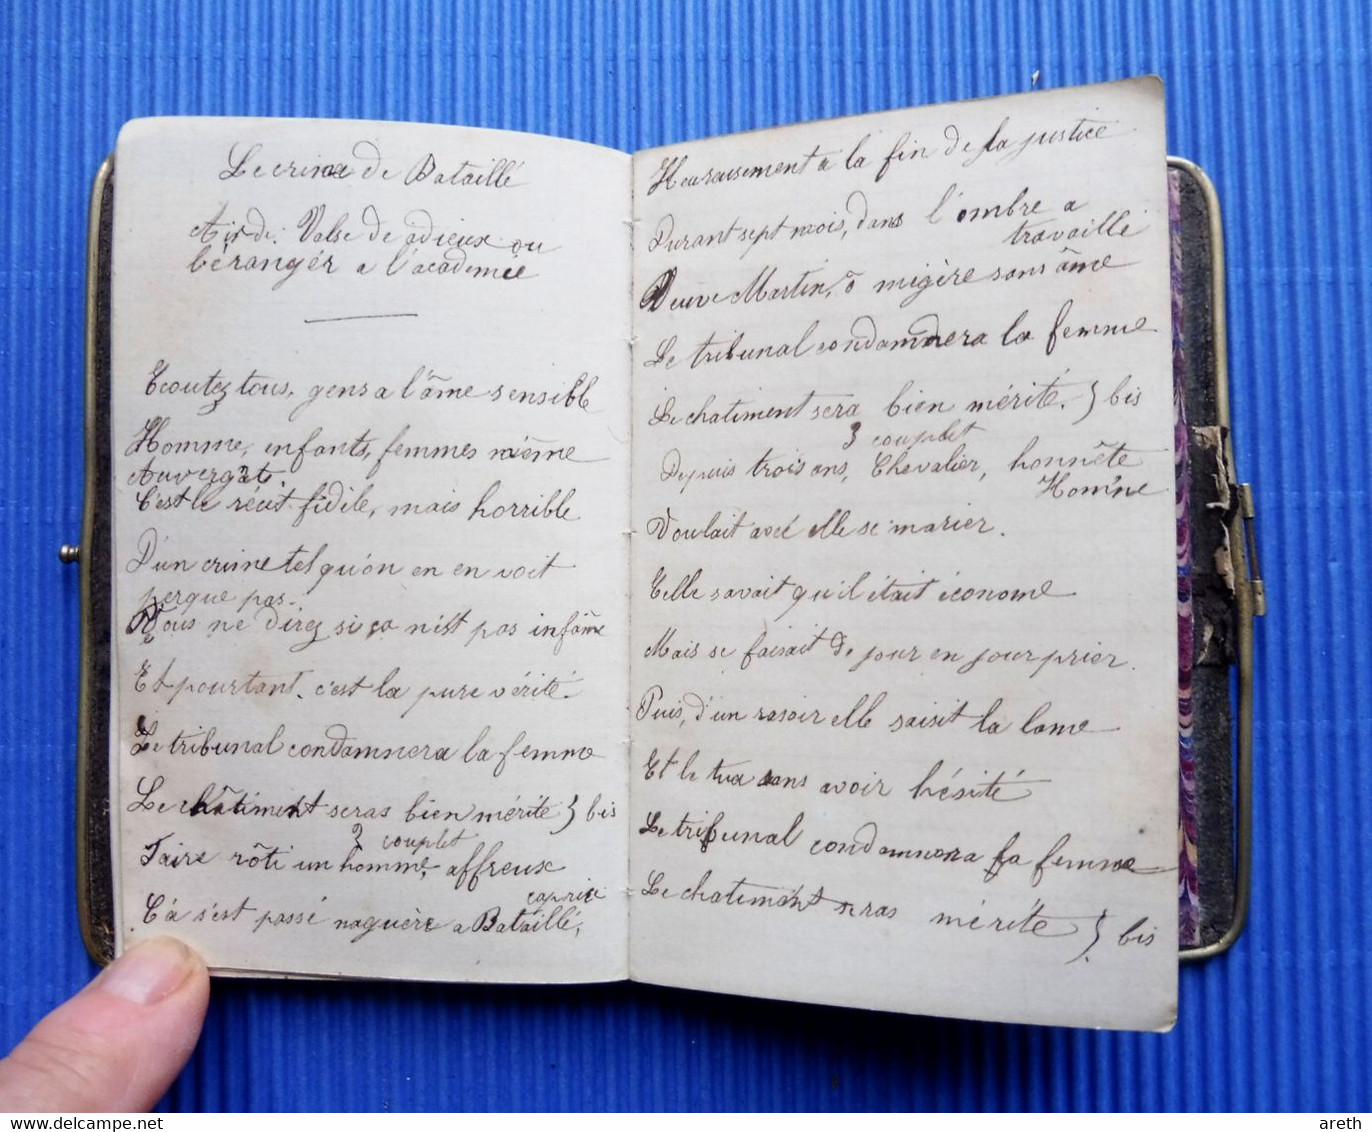 Le crime de Bataillé
Air de: Valse de adieux ou
béranger a l'académie
Ecoutez tous, gens a l'âme sensible
Homme, enfants, femmes même
Auvergat.
C'est le récit fidile, mais horrible
D'un crime tel qu'on en en voit
perque pas.
Vous ne direz si ça n'est pas infâme
Et pourtant. c'est la pure vérité.
Le tribunal condamnera la femme
Le châtiment seras bien mérite } bis
2 couplet
Faire rôti un homme, affreux
caprice
Ca s'est passé naguère a Bataillé,
Heuraisement a la fin de la justice
Durant sept mois, dans l'ombre a
travaillé
Veuve Martin, ô migère sans âme
Le tribunal condamnera la femme
Le chatiment sera bien mérité. } bis
3 couplet
Depuis trois ans, Chevalier, honnête
Homme
Voulait avec elle se marier.
Elle savait qu'il était économe
Mais se faisait de jour en jour prier.
Puis, d'un rasoir elle saisit la lame
Et le tua sans avoir hésité
Le tribunal condamnera la femme
Le chatiment seras mérite } bis
areth